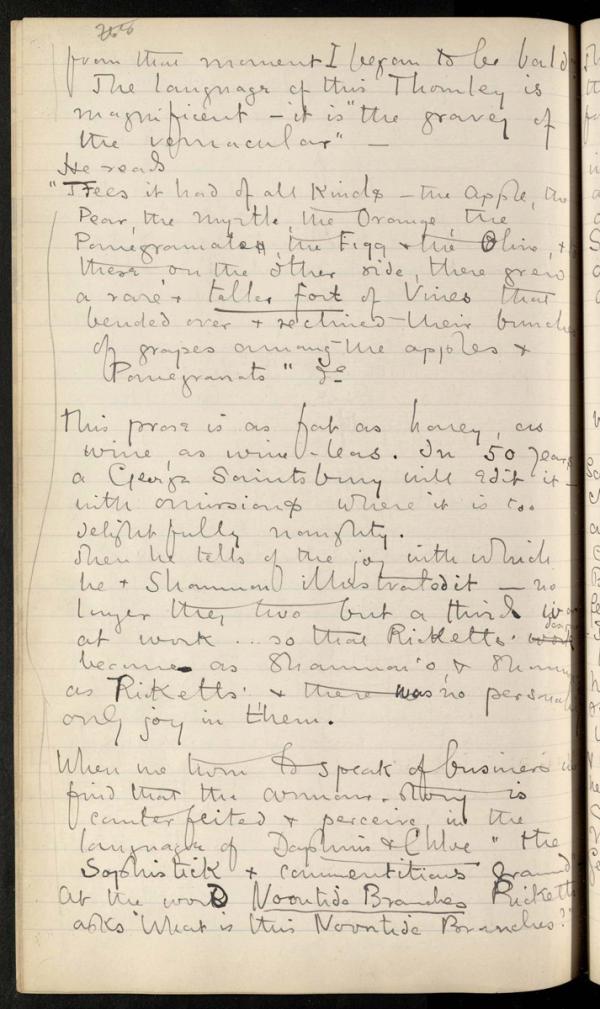 from that moment I began to be bald
The language of this Thornley is
magnificent – it is "the gravey of
the vernacular" –
He reads
"Trees it had of all Kinds – the Apple, the
Pear, the Myrtle, the Orange, the
Pomegranate, the Figg & the Olive, &
these on the other side, there grew
a rare & taller fort of Vines that
bended over & reclined their bunches
of grapes among the apples &
Pomegranats" &c
This prose is as fat as honey, as
wine, as wine-leas. In 50 years
a George Saintsbury will edit it –
with omissions where it is too
delightfully naughty.
Then he tells of the joy with which
he & Shannon illustrated it – no
longer they two but a third was
at work ... so that Ricketts'
became as Shannon's, & Shannon's
as Ricketts' & there was no personality
only joy in them.
When we turn to speak of business we
find that the story is
counterfeited & perceive in the
language of Daphnis & Chloe "the
Sophistick & commentitious
At the word Noontide Branches Ricketts
asks "What is this Noontide Branches?"